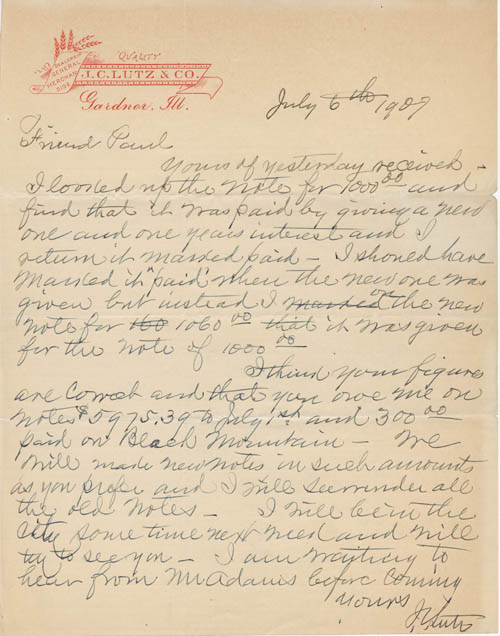 "QUALITY"
DEALERS IN
GENERAL
MERCHAN-
DISE
J.C. LUTZ & CO.
Gardner, Ill.
July 6th 1907
Friend Paul
Yours of yesterday received -
I looked up the note for 1000 00 and
find that it was paid by giving a new
one and one years interest and I
return it marked paid - I should have
marked it "paid" when the new one was
given but instead I marked the new
note for 160 1060 00 that it was given
for the note of 1000 00
I think your figures
are correct and that you owe me on
notes $5975.39 to July 1st and 300 00
paid on Beach Mountain - We
will make new notes in such amounts
as you prefer and I will surrender all
the old notes - I will be in the
city some time next week and will
try to see you - I am waiting to
hear from Mr Adams before coming
Yours
J.C. Lutz